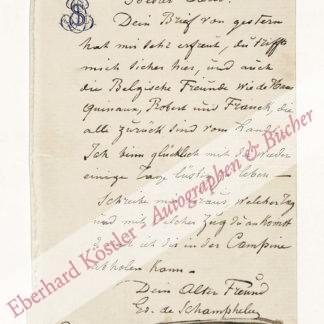 Dein Brief von gestern
hat mir sehr erfreut, du triffts
mich sicher hier, und auch
die Belgische Freunde wie de Haas
Quinaux, Robert und Franck, die
alle zurück sind vom Lande.
Ich bin glücklich mit dir wieder
einige Tage lustig leben –
Schreibe mir welcher Tag
und mit welcher Zug du ankomst
ich dir in der Campine
abholen kann –
Dein Alter Freund
Ed. de Schampheleer
Eberhard Köstler - Autographen & Bücher